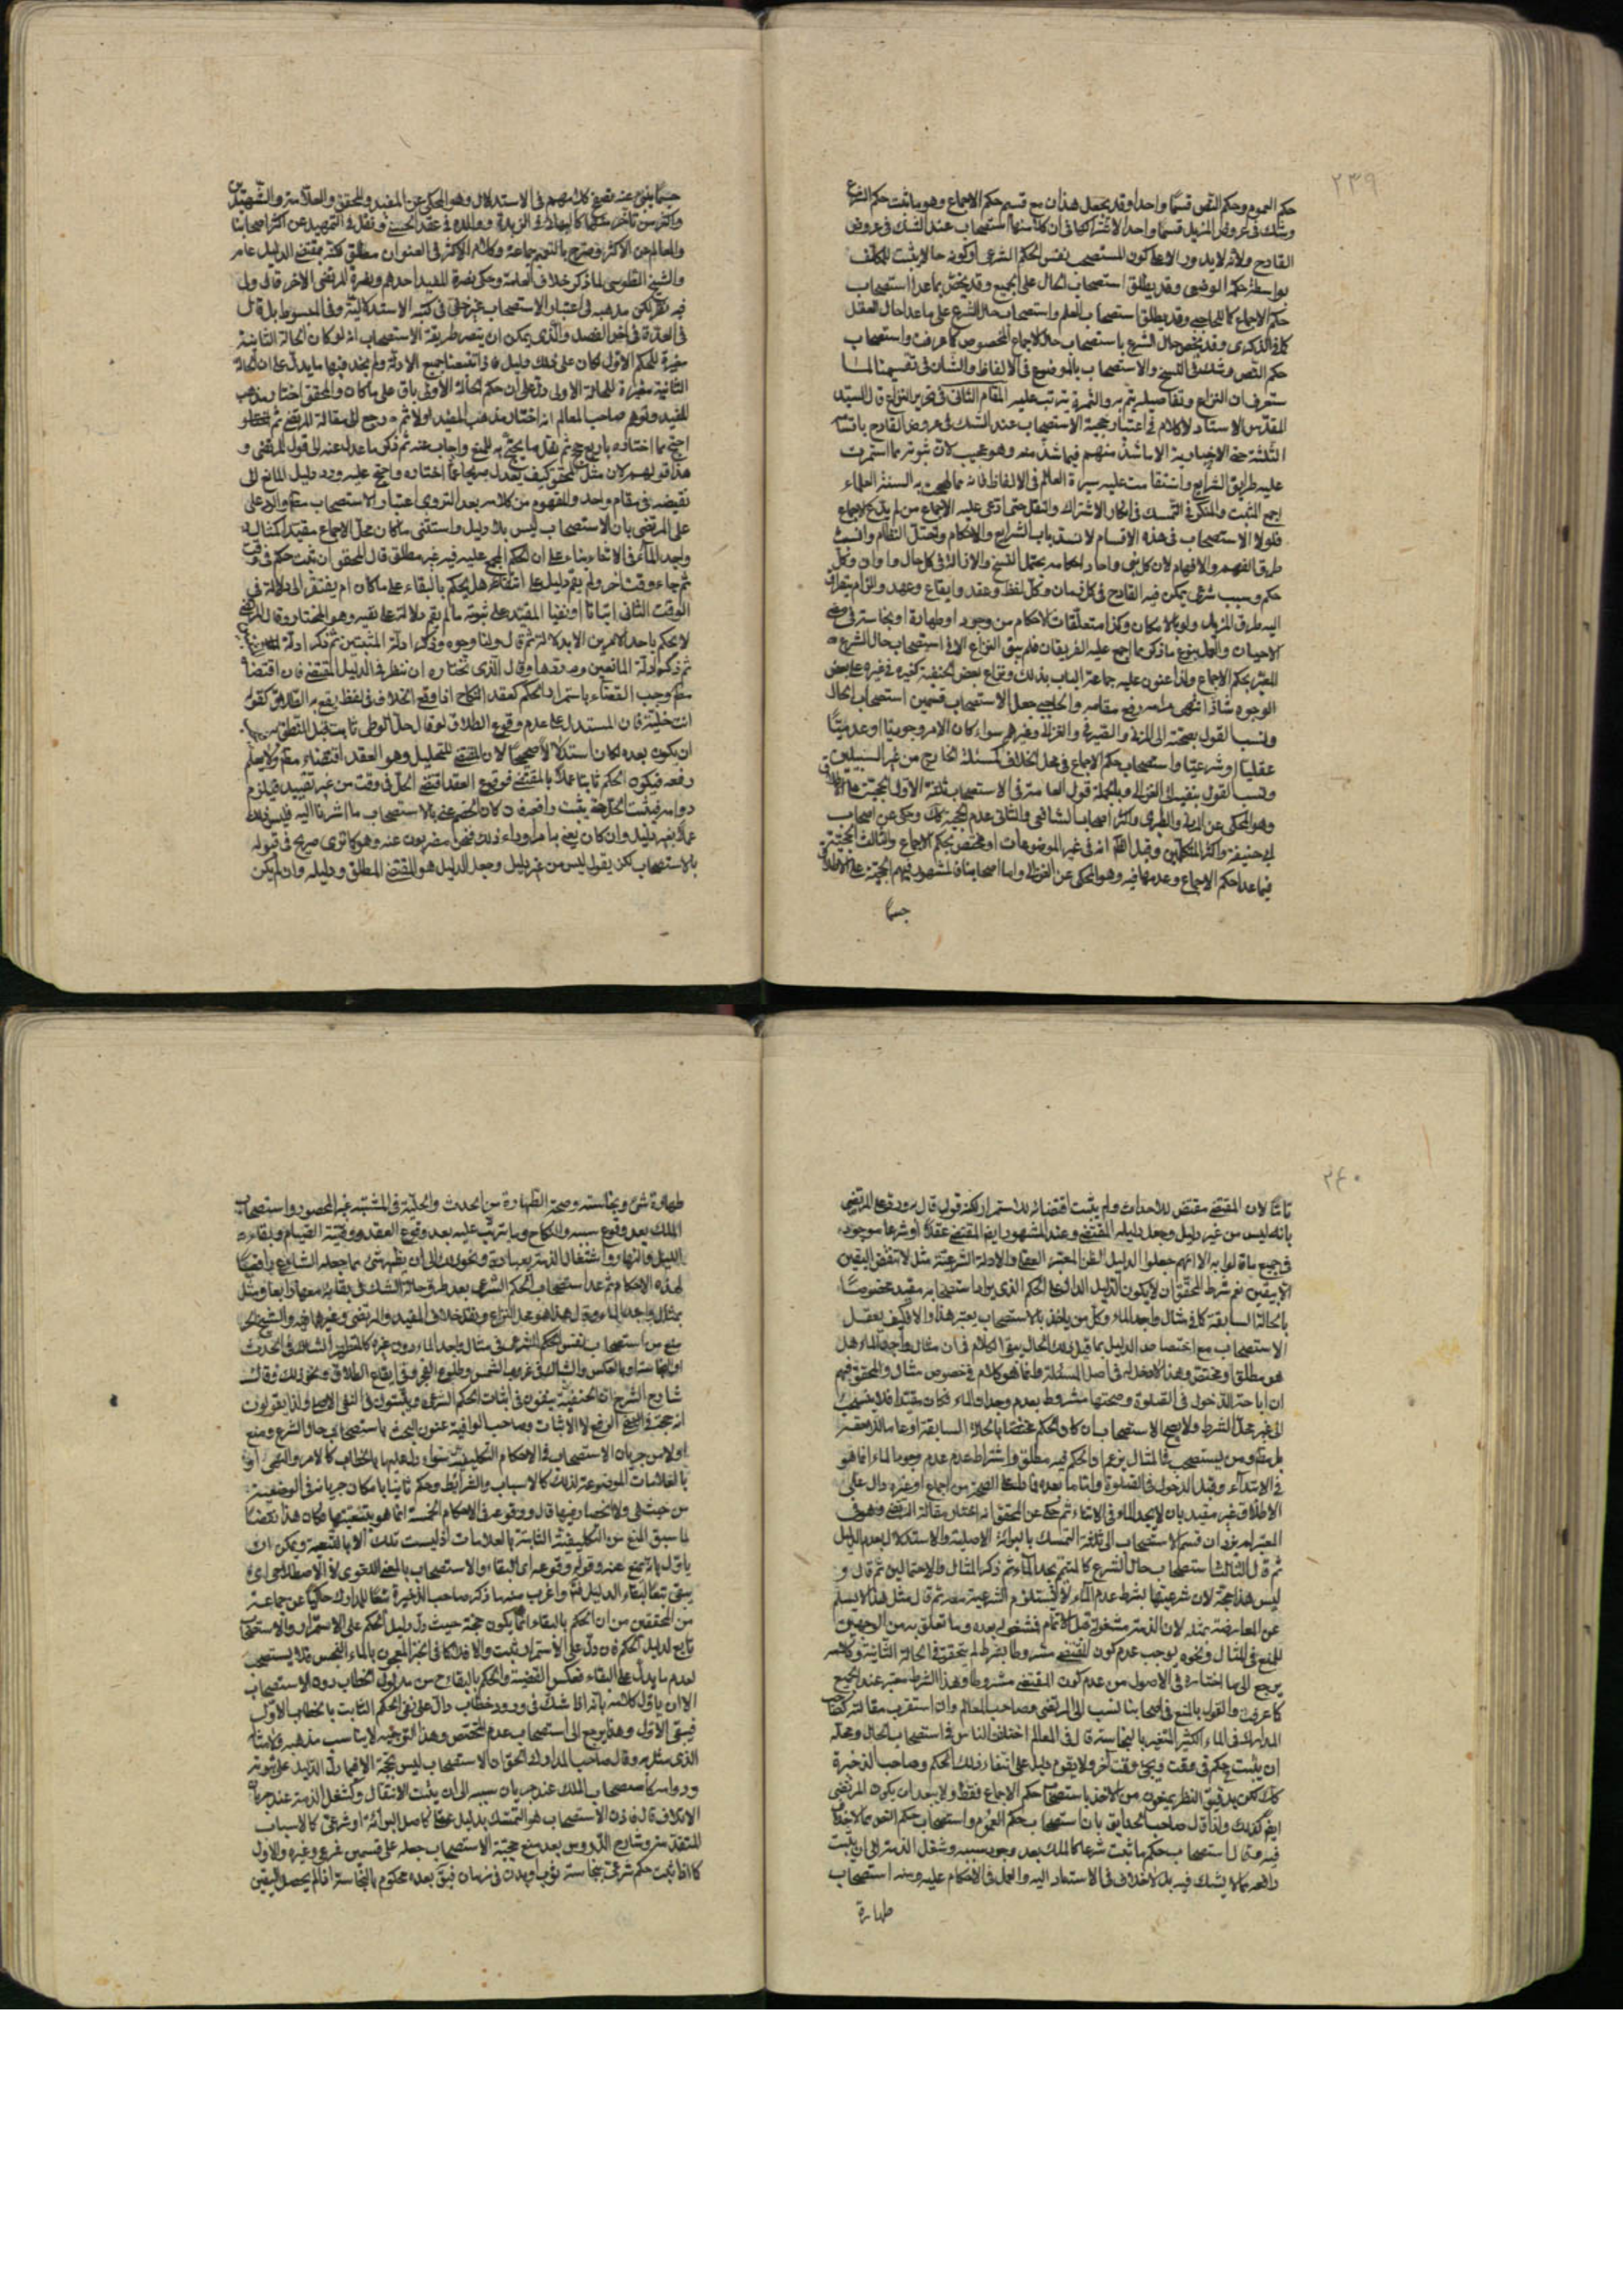 ٢٣٩
حكم العموم وحكم النص قسمًا واحدا وقد يجعل هذان مع قسيم حكم الاجماع وهو ما ثبت حكم الشرع
وشك في عروض المزيل قسما واحدا لاشتراكها في ان كلا منها استصحاب عند الشك في عروض
القادح ولانه لا يدور الا على كون المستصحب نفس الحكم الشرعي او كونه حالا يثبت للمكلف
بواسطته حكمه الوضعي وقد يطلق استصحاب الحال على الجميع وقد يخص بما عدا استصحاب
حكم الاجماع كما للحاجبي وقد يطلق استصحاب العلم واستصحاب حال الشرع على ما عدا حال العقل
كما في الذكرى وقد يخص حال الشرع باستصحاب حال الاجماع المخصوص كما عرفت واستصحاب
حكم النص وشك في النسخ والاستصحاب بالموضوع في الالفاظ والشان في تقسيمنا لما
ستعرف ان النزاع وتفاصيله يتم به والثمرة يترتب عليه المقام الثاني في تحرير النزاع قال السيد
المقدس الاستاد لا كلام في اعتبار حجية الاستصحاب عند الشك في عروض القادح باقسامه
الثلثة حتى الاخبارية الا ما شذ منهم فيما شذ منه وهو عجيب لان ثبوته مما استمرت
عليه طرايق الشرايع واستقامت عليه سيرة العالم في الالفاظ فانه مما لهجت به السنة العلماء
اجمع المثبت والمنكر في التمسك في انكار الاشتراك والنقل حتى ادعى عليه الاجماع من لم يدع الاجماع
فلولا الاستصحاب في هذه الاقسام لانسد باب الشرايع والاحكام واختل النظام وانسد
طريق الفهم والافهام لان كل نبي واحاد احكامه يحتمل النسخ والازالة في كل حال واوان وكل
حكم وسبب شرعي يمكن فيه القادح في كل زمان وكل لفظ وعقد وايقاع وعهد والتزام يتطرق
اليه طرق المزيل ولو بالامكان وكذا متعلقات الاحكام من وجود او طهارة او نجاسة في بعض
الاحيان والعمل بنوع ما ذكر مما اجمع عليه الفريقان فلم يبق النزاع الا في استصحاب حال الشرع
المعبر بحكم الاجماع ولذا عنون عليه جماعة الباب بذلك ونزاع بعض الحنفية كغيره في غيره على بعض
الوجوه شاذ انتهى دامه رفع مقامه والحاجبي جعل الاستصحاب قسمين استصحاب الحال
ونسب القول بصحته الى المزني والصيرفي والغزالي وغيرهم سواء كان الامر وجوديا او عدميًا
عقليًا او شرعيًا واستصحاب حكم الاجماع في محل الخلاف لمسئلة الخارج من غير السبيلين
ونسب القول بنفيه الى الغزالي وبالجملة قول العامة في الاستصحاب ثلثة الاول الحجية مطلقا
وهو المحكي عن المزني والظهري واكثر اصحاب الشافعي والثاني عدم الحجية كذلك وحكى عن اصحاب
ابي حنيفة واكثر المتكلمين وقيل انه في غير الموضوعات او مختص بحكم الاجماع والثالث الحجية
فيما عدا حكم الاجماع وعدمها فيه وهو المحكي عن الغزالي واما اصحابنا فالمشهور فيهم الحجية على الاطلاق
حسبما
حسبما ينبئ عنه تصفح كلامهم في الاستدلال وهو المحكي عن المفيد والمحقق والعلامة والشهيدين
واكثر من تاخر عنهما كالبهائي في الزبدة ووالده في عقد الحسيني ونقل في التمهيد عن اكثر اصحابنا
والمعالم عن الاكثر وصرح بالتعميم جماعة وكلام الاكثر في العنوان مطلق لكنه بمقتضى الدليل عام
والشيخ الطوسي لما ذكر خلاف العامة وحكى نصرة المفيد احدهم ونصرة المرتضى الاخر قال ولي
فيه نظر لكن مذهبه في اعتبار الاستصحاب غير خفي في كتبه الاستدلالية وفي المبسوط بل قال
في العدة في اخر الفصل والذي يمكن ان ينصر طريقة الاستصحاب انه لو كان الحالة الثانية
مغيرة للحكم الاول لكان على ذلك دليل فاذا تتبعنا جميع الادلة ولم نجد فيها ما يدل على ان الحالة
الثانية مغيرة للحالة الاولى دل على ان حكم الحالة الاولى باق على ما كان والمحقق اختار مذهب
المفيد وتوهم صاحب المعالم انه اختار مذهب المفيد اولا ثم رجع الى مقالة المرتضى ثم
احتج بما اختاره باربع حجج ثم نقل ما يحتج به للمنع واجاب عنه ثم ذكر ما عدله عنه الى قول المرتضى و
هذا توهم لان مثل المحقق كيف يعدل سريعا عما اختاره واحتج عليه ورد دليل المانع الى
نقيضه في مقام واحد والمفهوم من كلامه بعد التروي اعتبار الاستصحاب مطلقا والرد على
على المرتضى بان الاستصحاب ليس بلا دليل واستثنى ما كان محل الاجماع مقيدا كمثال
واجد الماء في الاثناء بناء على ان الحكم المجمع عليه فيه غير مطلق قال المحقق ان ثبت حكم في وقت
ثم جاء وقت اخر ولم يقم دليل على انتفائه هل يحكم بالبقاء على ما كان ام يفتقر الى دلالة في
الوقت الثاني اثباتا او نفيا المفيد على ثبوته ما لم يقم دلالة على نفيه وهو المختار وقال المرتضى
لا يحكم باحد الامرين الا بدلالة ثم قال ولنا وجوه وذكر ادلة المثبتين ثم ذكر ادلة
ثم ذكر ادلة المانعين وصدقها وقال الذي نختاره ان ننظر في الدليل المقتضي فان اقتضاه
مطلقا وجب القضاء باستمرار الحكم كعقد النكاح اذا وقع الخلاف في لفظ يقع به الطلاق كقوله
انت خلية فان المستدل على عدم وقوع الطلاق لو قال حل الوطى ثابت قبل النطق
ان يكون بعده لكان استدلالا صحيحًا لان المقتضي للتحليل وهو العقد اقتضاه مطلقا ولا يعلم
رفعه فيكون الحكم ثابتا عملا بالمقتضي فوقوع العقد اقتضى الحل في وقت من غير تقييد فيلزم
دوامه فيثبت الحل حتى يثبت رافعه فان كان الخصم عنى بالاستصحاب ما اشرنا اليه فليس ذلك
عملا بغير دليل وان كان يعني به امرا وراء ذلك فنحن مضربون عنه وهو كما ترى صريح في قبوله
بالاستصحاب لكن يقول ليس من غير دليل وجعل الدليل هو المقتضي المطلق ودليله وان لم يكن
٢٤٠
ثابتًا لان المقتضي مقتض للاحداث ولم يثبت اقتضائه للاستمرار لكنه قول قال به ورد على المرتضى
بانه ليس من غير دليل وجعل دليله المقتضي وعند المشهور ايضا المقتضي عقلا او شرعا موجود
في جميع ما قالوا به الا انهم جعلوا الدليل الظن المعتبر العقلي والادلة الشرعية مثل لا تنقض اليقين
الا بيقين نعم شرط المحقق ان لا يكون الدليل الدال على الحكم الذي يراد استصحابه مقيد مخصوصًا
بالحالة السابقة كما في مثال واجد الماء وكل من ياخذ بالاستصحاب يعتبر هذا والا فكيف يعقل
الاستصحاب مع اختصاص الدليل بما قبل تلك الحال بقي الكلام في ان مثال واجد الماء هل
هو مطلق او مختص وهذا لا دخل له في اصل المسئلة وانما هو كلام في خصوص مثال والمحقق فهم
ان اباحة الدخول في الصلوة وصحتها مشروط بعدم وجدان الماء فكان مقيدا فلا يتسرى
الى غير محل الشرط ولا يصح الاستصحاب ان كان الحكم مختصا بالحالة السابقة او عاما لذلك
بل مطلقا ومن يستصحب في المثال يزعم ان الحكم فيه مطلق واشتراط عدم عدم وجود الماء انما هو
في الابتداء وقبل الدخول في الصلوة واما ما بعده فما دل على الصحة من اجماع او غيره دال على
الاطلاق غير مقيد بان لا يجد الماء في الاثناء ثم حكى عن المحقق انه اختار مقالة المرتضى وهو في
المعتبر لم يزد ان قسم الاستصحاب الى ثلثة التمسك بالبرائة الاصلية والاستدلال بعدم الدليل
ثم قال الثالث استصحاب حال الشرع كالمتيمم يجد الماء ثم ذكر المثال والاحتمالين ثم قال و
ليس هذا حجة لان شرعيتها بشرط عدم الماء لا يستلزم الشرعية معه ثم قال مثل هذا لا يسلم
عن المعارضة بمثله لان الذمة مشغولة قبل الاتمام فيستصحب بعده وما تعلق به من الوجهين
للمنع في المثال ونحوه يوجب عدم كون المقتضي مشروطا بشرط لم يتحقق في الحالة الثانية وكلامه
يرجع الى ما اختاره في الاصول من عدم كون المقتضي مشروطا وهذا الشرط معتبر عند الجميع
كما عرفت والقول بالمنع في اصحابنا نسب الى المرتضى وصاحب المعالم وان استقرب مقالته كصاحب
المدارك في الماء الكثير المتغير بالنجاسة قال في المعالم اختلف الناس في استصحاب الحال ومحله
ان يثبت حكم في وقت ويجئ وقت اخر ولا يقوم دليل على انتفاء ذلك الحكم وصاحب الذخيرة
كذلك لكن بدقيق النظر يخرجون من الاخذ باستصحاب حكم الاجماع فقط ولا يبعد ان يكون المرتضى
ايضا كذلك ولذا قال صاحب الحدايق بان استصحاب حكم العموم واستصحاب حكم النص مما لا خلاف
فيه وقال استصحاب حكم ما ثبت شرعا كالملك بعد وجود سببه وشغل الذمة الى ان يثبت
رافعه مما لا يشك فيه بل لا خلاف في الاستناد اليه والعمل في الاحكام عليه ومنه استصحاب
طهارة
طهارة شئ ونجاسته وصحة الطهارة من الحدث والحلية في المشتبه غير المحصور واستصحاب
الملك بعد وقوع سببه والنكاح وما يترتب عليه بعد وقوع العقد ووقتية الصيام وبقاء
الليل والنهار واشتغال الذمة بعبادة ونحو ذلك الى ان يظهر شئ مما جعله الشارع رافعًا
لهذه الاحكام ثم عد استصحاب الحكم الشرعي بعد طرو حالة الشك في بقائه معها رابعا ومثل
بمثال واجد الماء وقال هذا هو محل النزاع ونقل خلاف المفيد والمرتضى وغيرهما فيه والشيخ الحر
منع من استصحاب نفس الحكم الشرعي في مثال واجد الماء دون غيره كالمتطهر الشاك في الحدث
او النجاسة او بالعكس والشاك في غروب الشمس وطلوع الفجر وفي ايقاع الطلاق ونحو ذلك وقال
شارح الشرح ان الحنفية ينفون في اثبات الحكم الشرعي ويثبتون في النفي الاصلي ولذا يقولون
انه حجة في الدفع لا الاثبات وصاحب الوافية عنون البحث باستصحاب حال الشرع ومنع
اولا من جريان الاستصحاب في الاحكام التكليفية سواء دل عليها بالخطاب كالامر والنهي او
بالعلامات الموضوعة لذلك كالاسباب والشرائط وحكم ثانيا بامكان جريانه في الوضعية
من حيث هي ولا انحصار فيها قال ووقوعه في الاحكام الخمسة انما هو بتبعيتها فكان هذا نقضا
لما سبق المنع من التكليفية الثابتة بالعلامات اذ ليست تلك الا بالتبعية ويمكن ان
ياول بانه يمنع عنه وقوله وقوعه اي البقاء والاستصحاب بالمعنى اللغوي لا الاصطلاحي اي
يبقى تبعًا لبقاء الدليل لها واغرب منه ما ذكره صاحب الذخيرة تبعًا للمدارك حاكيًا عن جماعة
من المحققين من ان الحكم بالبقاء انما يكون حجة حيث دل دليل الحكم على الاستمرار والاستصحاب
تابع لدليل الحكم فان دل على الاستمرار ثبت والا فلا كما في الخبز المعجون بالماء النجس فلا يستصحب
لعدم ما يدل على البقاء فعكس القضية والحكم بالبقاء ح من مدلول الخطاب دون الاستصحاب
الا ان ياول كلامه بانه اذا شك في ورود خطاب دال على نفي الحكم الثابت بالخطاب الاول
فيبقى الاول وهذا يرجع الى استصحاب عدم المخصص وهذا التوجيه لا يناسب مذهبه ولا مثاله
الذي مثل به وقال صاحب المدارك الحق ان الاستصحاب ليس بحجة الا فيما دل الدليل على ثبوته
ودوامه كاستصحاب الملك عند جريان سببه الى ان يثبت الانتقال وكشغل الذمة عند جريان
الاتلاف قال فاذن الاستصحاب هو التمسك بدليل عقلي كاصل البرائة او شرعي كالاسباب
المتقدمة وشارح الدروس بعد منع حجية الاستصحاب جعله على قسمين شرعي وغيره والاول
كما اذا ثبت حكم شرعي بنجاسة ثوب او بدن في زمان فيبقى بعده محكوم بالنجاسة اذا لم يحصل اليقين